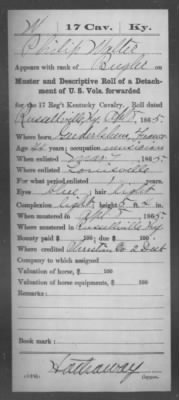 W 17 Cav. Ky.
Philip Walter
Appears with rank of Bugler on
Muster and Descriptive Roll of a Detach-
ment of U. S. Vols. forwarded
for the 17 Reg't Kentucky Cavalry. Roll dated
Russellville Ky Apl 5, 1865.
Where born France
Age 26 years; occupation musician
When enlisted 1865.
Where enlisted Louisville
For what period enlisted years.
Eyes blue; hair light
Complexion light; height 5 ft. in.
When mustered in Apl 5, 1865.
Where mustered in Russellville Ky
Bounty paid $ 100; due $ 100
Where credited Christian Co 2 Dist
Company to which assigned
Valuation of horse, $ 100
Valuation of horse equipments, $ 100
Remarks:
Book mark:
Hathaway
Copyist.